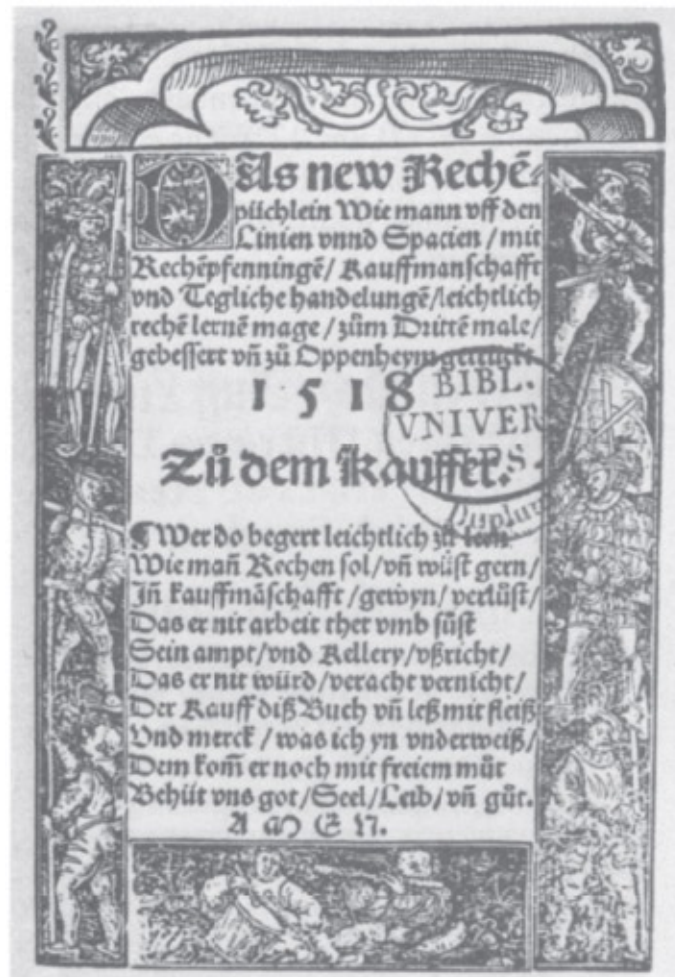 DAs new Rechē⸗
püchlein Wie mann vff den
Linien vnnd Spacien / mit
Rechēpfenningē / Kauffmanſchafft
vnd Tegliche handelungē / leichtlich
rechē lernē mage / zům Drittē male /
gebeſſert vn̄ zů Oppenheym getruckt
1518
BIBL.
VNIVER
Zů dem Kauffer.
Wer do begert leichtlich zů lern
Wie man̄ Rechen ſol / vn̄ wüſt gern /
Jn̄ kauffmāſchafft / gewyn / verlüſt /
Das er nit arbeit thet vmb ſüſt
Sein ampt / vnd Kellery / vßricht /
Das er nit würd / veracht vernicht /
Der Kauff diß Buch vn̄ leß mit fleiß
Vnd merck / was ich yn vnderweiß /
Dem kom̄ er noch mit freiem můt
Behüt vns got / Seel / Leib / vn̄ gůt.
A M E N.